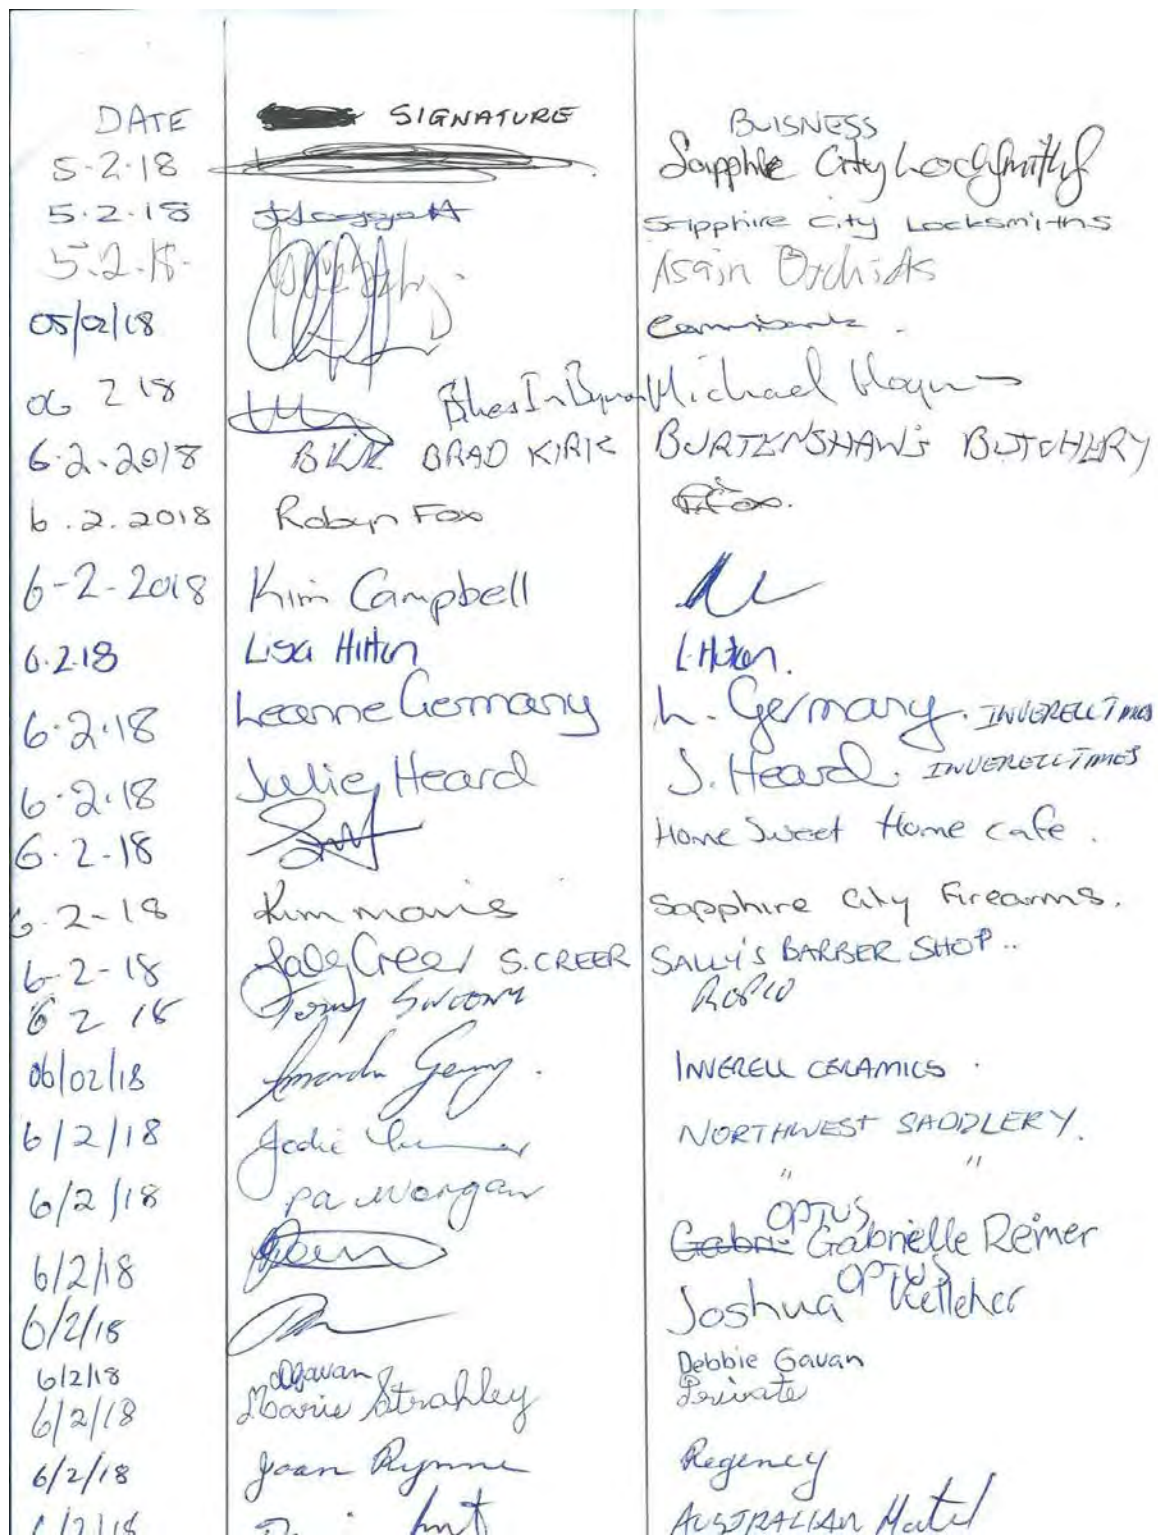 DATE SIGNATURE BUISNESS
5-2-18 Sapphire City Locksmiths
5.2.18 Sapphire City Locksmiths
5.2.18. Asain Orchids
05/02/18
06 2 18 Michael
6.2.2018 BRAD KIRK BURTENSHAW'S BUTCHERY
6.2.2018 Robyn Fox RFox.
6-2-2018 Kim Campbell
6.2.18 Lisa Hilton L.Hilton.
6.2.18 Leanne Germany L. Germany. INVERELL TIMES
6.2.18 Julie Heard J. Heard. INVERELL TIMES
6.2-18 Home Sweet Home cafe.
6-2-18 Kim Sapphire City Firearms.
6-2-18 S.CREER SALLY'S BARBER SHOP..
6 2 18 Tony
06/02/18 Amanda INVERELL CERAMICS.
6/2/18 Jodie NORTHWEST SADDLERY.
" "
6/2/18 PA Morgan
OPTUS
6/2/18 Gabri Gabrielle Reimer
OPTUS
6/2/18 Joshua Kelleher
6/2/18 DGavan Debbie Gavan
6/2/18 Marie Strahley Private
6/2/18 Joan Rynne Regency
6/2/18 AUSTRALIAN Hotel